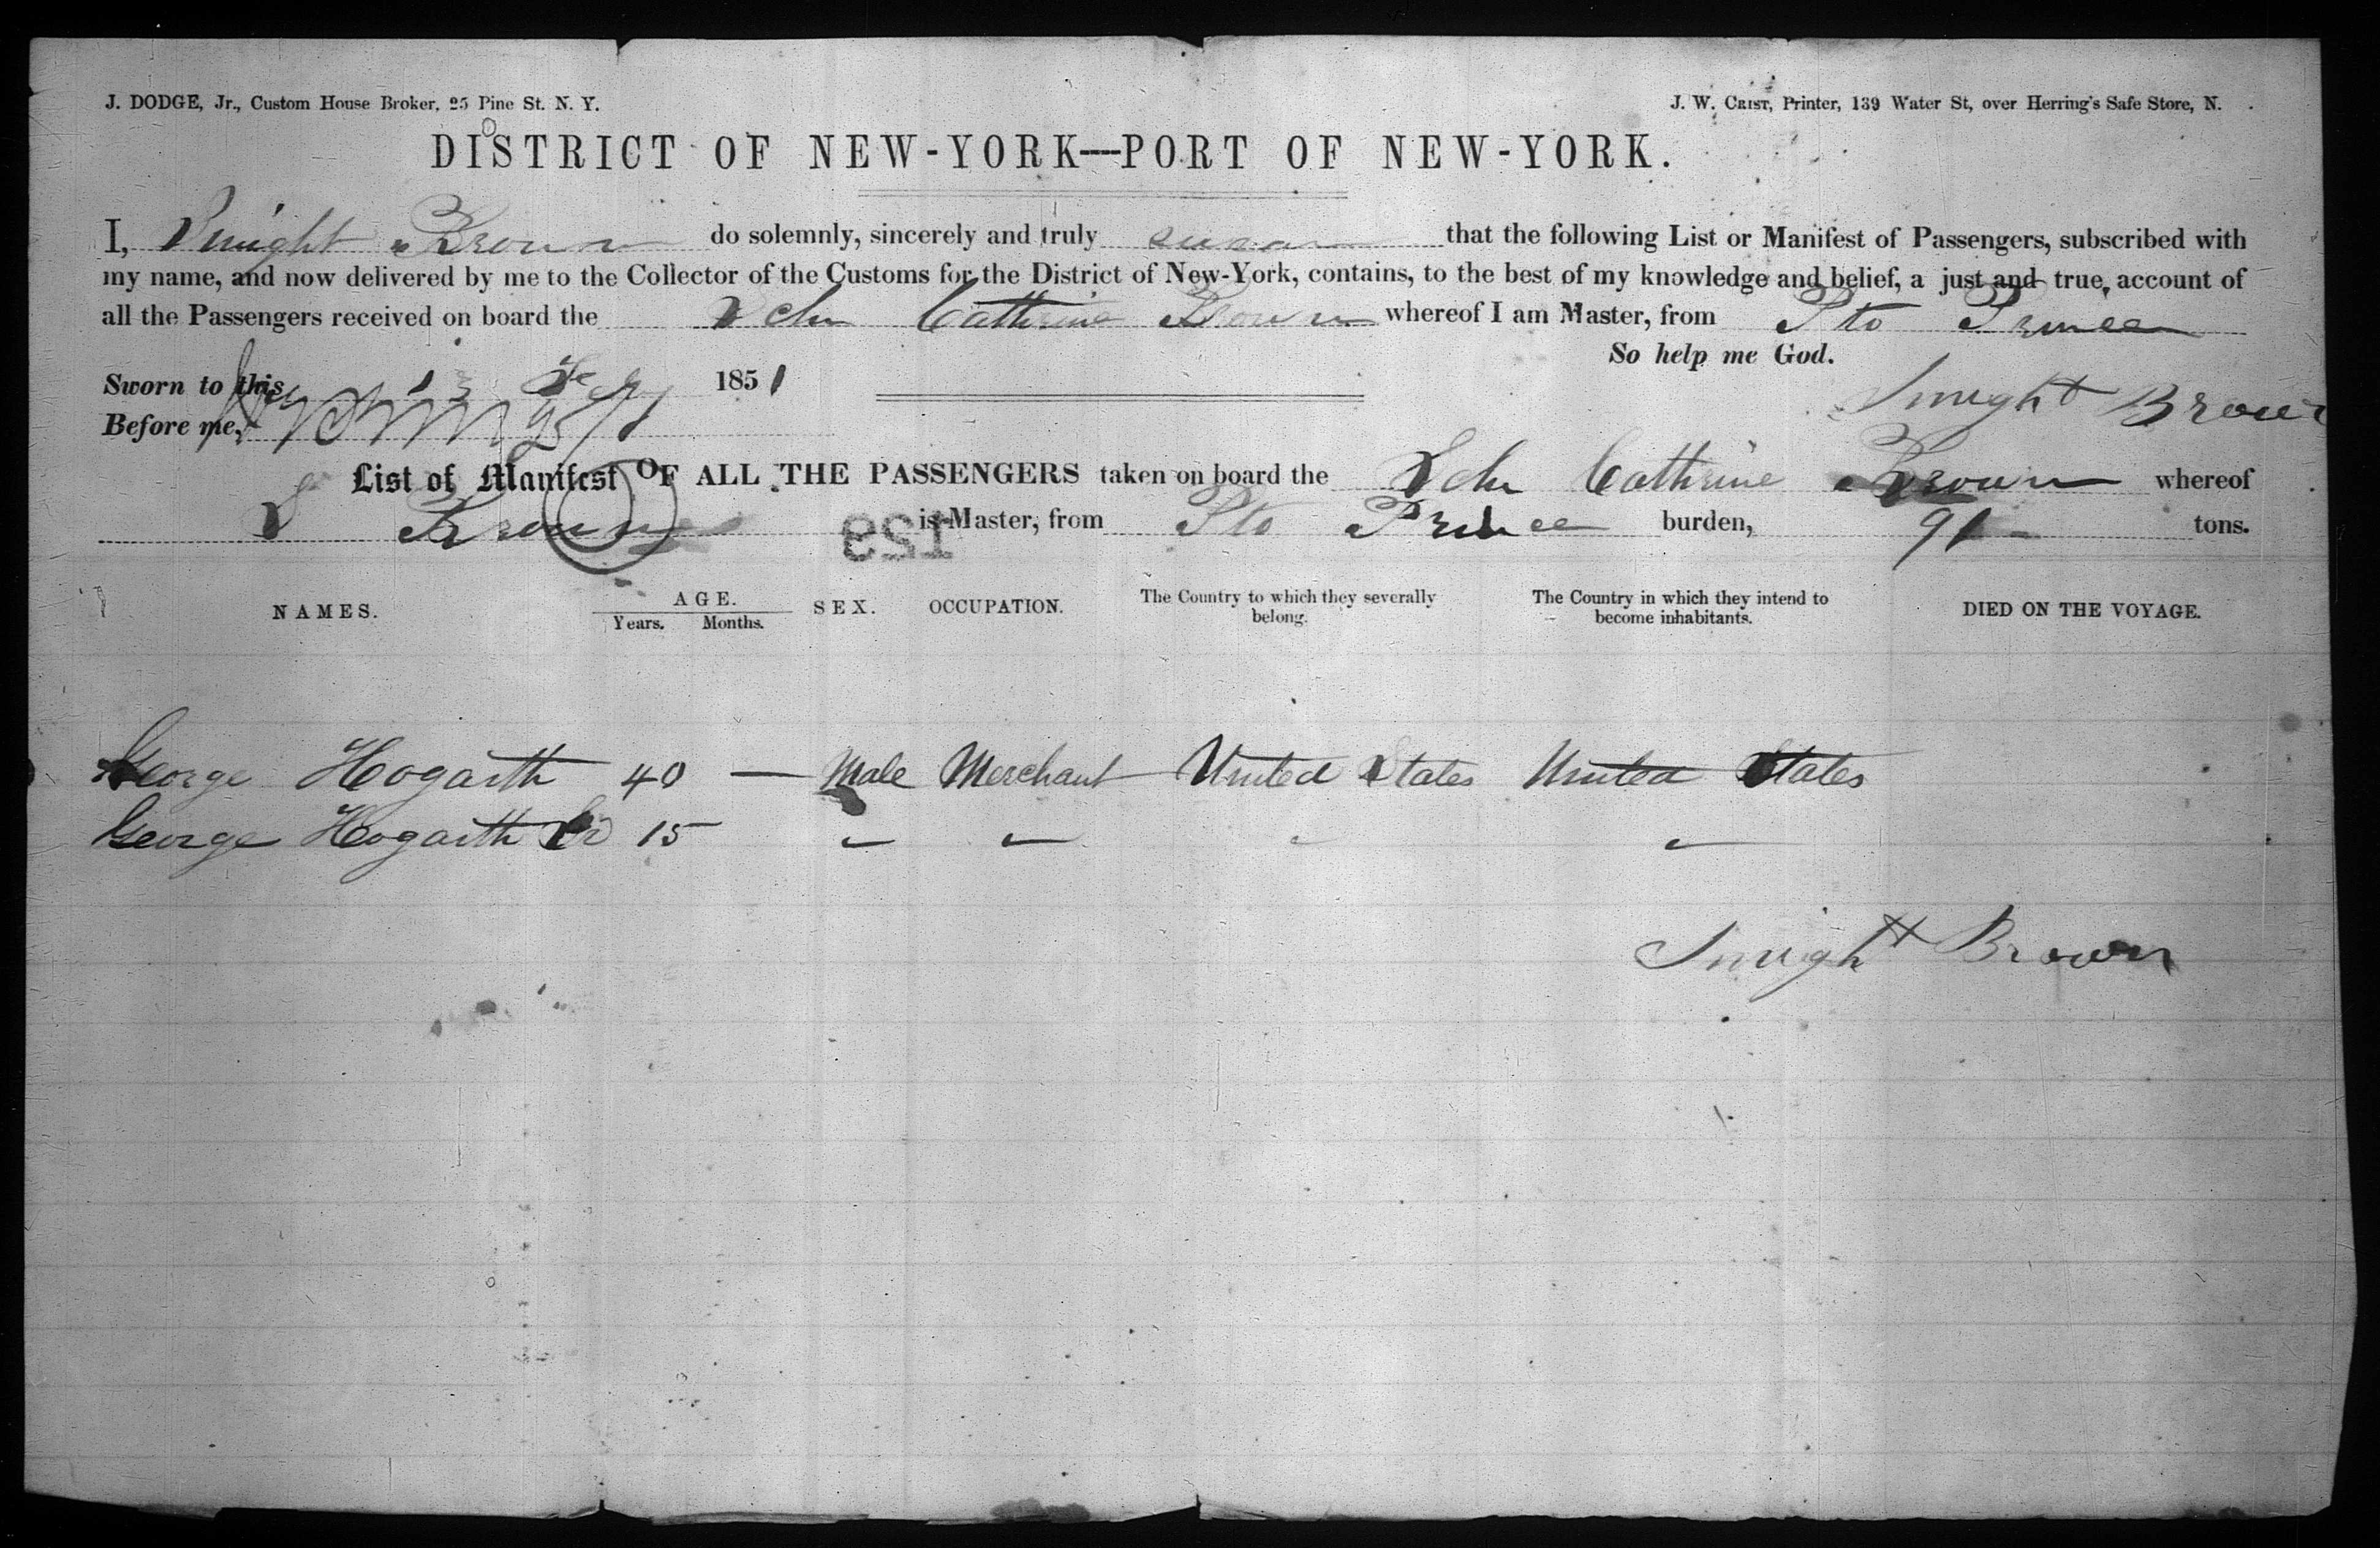 J. DODGE, Jr., Custom House Broker, 25 Pine St. N. Y.
J. W. CRIST, Printer, 139 Water St, over Herring's Safe Store, N.
DISTRICT OF NEW-YORK—PORT OF NEW-YORK.
I, Smight Brown do solemnly, sincerely and truly swear that the following List or Manifest of Passengers, subscribed with
my name, and now delivered by me to the Collector of the Customs for the District of New-York, contains, to the best of my knowledge and belief, a just and true, account of
all the Passengers received on board the Schr Cathrine Brown whereof I am Master, from Pto Prince
So help me God.
Sworn to this 13 1851
Smight Brown
Before me,
List of Manifest OF ALL THE PASSENGERS taken on board the Schr Cathrine Brown whereof
S Brown is Master, from Pto Prince burden, 91 tons.
123
NAMES. AGE. SEX. OCCUPATION. The Country to which they severally belong. The Country in which they intend to become inhabitants. DIED ON THE VOYAGE.
Years. Months.
George Hogarth 40 — Male Merchant United States United States
George Hogarth Jr 15 " " " "
Smight Brown